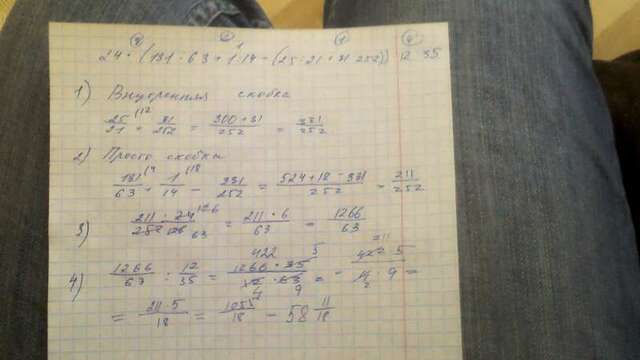 ③ ② ① ④
24 · (131 : 63 + 1 : 14 - (25 : 21 + 31 : 252)) : 12 : 35
1) Внутренняя скобка
25/21 (12 + 31/252 = 300 + 31/252 = 331/252
2) Просто скобки
131/63 (4 + 1/14 (18 - 331/252 = 524 + 18 - 331/252 = 211/252
3) 211 · 24/252 126 63 = 211 · 6/63 = 1266/63
4) 1266/63 : 12/35 = 1266 · 35/12 · 63 = 422 · 5/4 · 9 =
= 211 · 5/18 = 1055/18 = 58 11/18